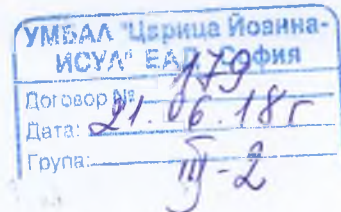 УМБАЛ "Царица Йоанна-
ИСУЛ" ЕАД София
Договор № 179
Дата: 21.06.18г
Група: III-2